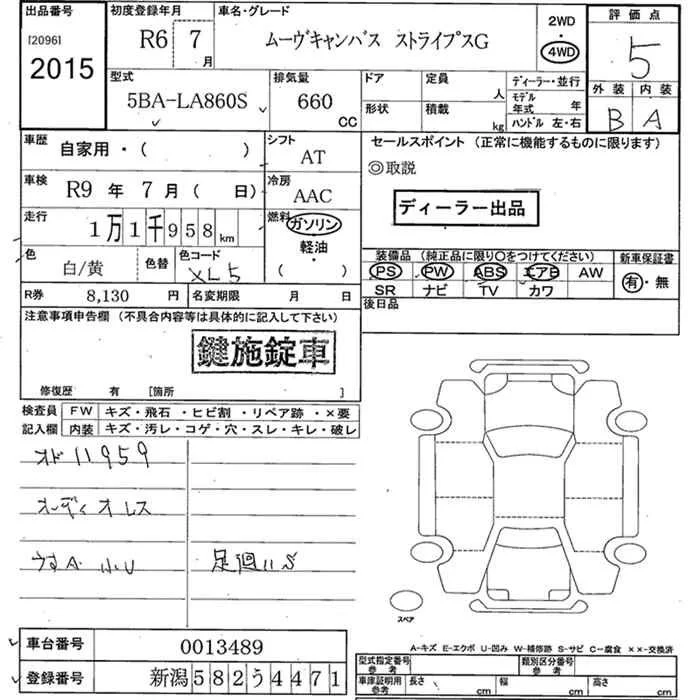 出品番号
[2096]
2015
初度登録年月
R6 7月
車名・グレード
ムーヴキャンバス ストライプスG
2WD
・
4WD
評価点
5
外装 内装
B A
型式
5BA-LA860S
排気量
660 CC
ドア
形状
定員 人
積載 kg
ディーラー・並行
モデル年式 年
ハンドル 左・右
車歴 自家用・( )
シフト AT
セールスポイント (正常に機能するものに限ります)
◎取説
ディーラー出品
車検 R9年 7月( 日)
冷房 AAC
走行 1万1千958 km
燃料 ガソリン
軽油・
( )
色 白/黄
色替
色コード XL5
装備品 (純正品に限り○をつけてください)
PS PW ABS エアB AW
SR ナビ TV カワ
新車保証書
有・無
R券 8,130 円
名変期限 月 日
後日品
注意事項申告欄 (不具合内容等は具体的に記入して下さい)
鍵施錠車
修復歴 有 [箇所 ]
検査員記入欄
FW キズ・飛石・ヒビ割・リペア跡・×要
内装 キズ・汚レ・コゲ・穴・スレ・キレ・破レ
オド11959
オーディオレス
足廻小S
スペア
A-キズ E-エクボ U-凹み W-補修跡 S-サビ C-腐食 ××-交換済
車台番号 0013489
登録番号 新潟582う4471
型式指定番号 参考
類別区分番号 参考
車庫証明用 参考
長さ cm 幅 cm 高さ cm